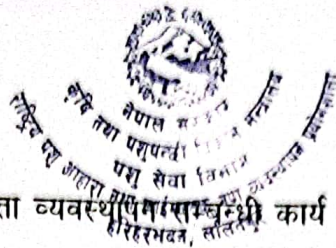 नेपाल सरकार
कृषि तथा पशुपन्छी विकास मन्त्रालय
पशु सेवा विभाग
राष्ट्रिय पशु आहारा व्यवस्थापन
ता व्यवस्थापन सम्बन्धी कार्य
हरिहरभवन, ललितपुर